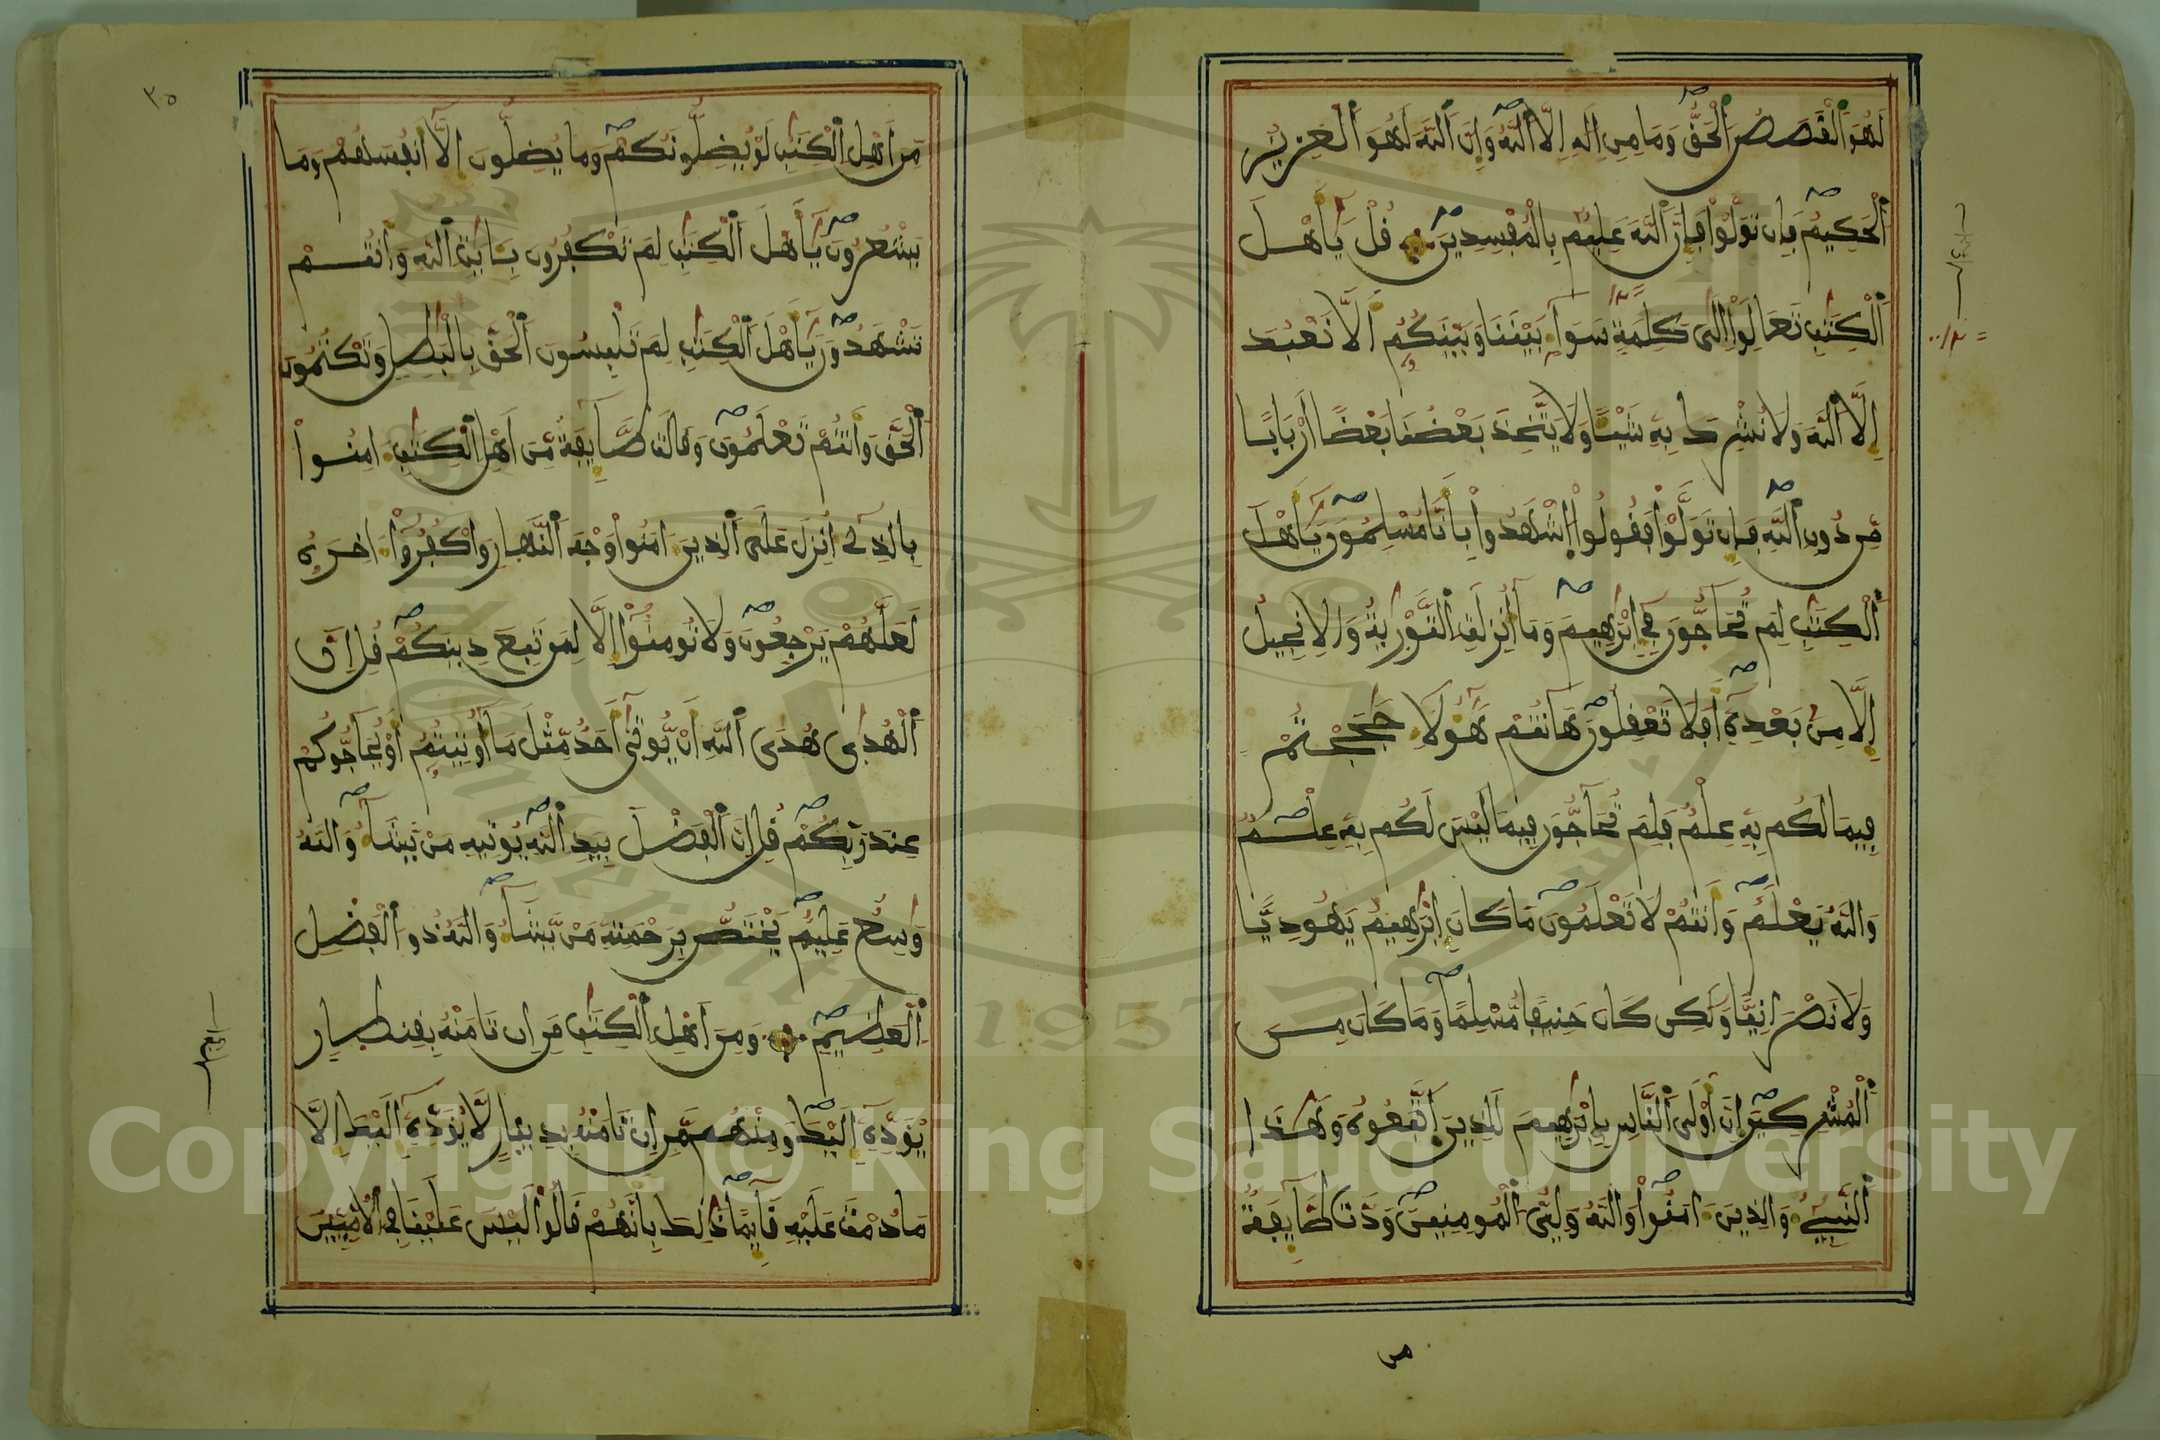 لَهُوَ ٱلْقَصَصُ ٱلْحَقُّ وَمَا مِنِ اِلَٰهٍ اِلَّا ٱللَّهُ وَإِنَّ ٱللَّهَ لَهُوَ ٱلْعَزِيزُ
ٱلْحَكِيمُ فَإِن تَوَلَّوْاْ فَإِنَّ ٱللَّهَ عَلِيمٌ بِالْمُفْسِدِينَ قُلْ يَٰٓأَهْلَ
ٱلْكِتَٰبِ تَعَالَوِاْ اِلَىٰ كَلِمَةٍ سَوَآءٍ بَيْنَنَا وَبَيْنَكُمُۥٓ أَلَّا نَعْبُدَ
إِلَّا ٱللَّهَ وَلَا نُشْرِكَ بِهِۦ شَيْـًٔا وَلَا يَتَّخِذَ بَعْضُنَا بَعْضًا اَرْبَابًا
مِّن دُونِ ٱللَّهِ فَإِن تَوَلَّوْاْ فَقُولُواْ اُشْهَدُواْ بِأَنَّا مُسْلِمُونَ يَٰٓأَهْلَ
ٱلْكِتَٰبِ لِمَ تُحَآجُّونَ فِىٓ إِبْرَٰهِيمَ وَمَآ أُنزِلَتِ ٱلتَّوْرَىٰةُ وَالِانجِيلُ
إِلَّا مِنۢ بَعْدِهِۦٓ أَفَلَا تَعْقِلُونَ هَآنتُمْ هَٰٓؤُلَآءِ حَٰجَجْتُمْ
فِيمَا لَكُم بِهِۦ عِلْمٌ فَلِمَ تُحَآجُّونَ فِيمَا لَيْسَ لَكُم بِهِۦ عِلْمٌ
وَاللَّهُ يَعْلَمُ وَأَنتُمْ لَا تَعْلَمُونَ مَا كَانَ إِبْرَٰهِيمُ يَهُودِيًّا
وَلَا نَصْرَانِيًّا وَلَٰكِن كَانَ حَنِيفًا مُّسْلِمًا وَمَا كَانَ مِنَ
ٱلْمُشْرِكِينَ إِنَّ أَوْلَى ٱلنَّاسِ بِإِبْرَٰهِيمَ لَلَّذِينَ ٱتَّبَعُوهُ وَهَٰذَا
ٱلنَّبِىٓءُ وَالَّذِينَ ءَامَنُواْ وَاللَّهُ وَلِىُّ ٱلْمُومِنِينَ وَدَّت طَّآئِفَةٌ
٣٥
مِّنَ اَهْلِ ٱلْكِتَٰبِ لَوْ يُضِلُّونَكُمْ وَمَا يُضِلُّونَ إِلَّآ أَنفُسَهُمْ وَمَا
يَشْعُرُونَ يَٰٓأَهْلَ ٱلْكِتَٰبِ لِمَ تَكْفُرُونَ بِـَٔايَٰتِ ٱللَّهِ وَأَنتُمْ
تَشْهَدُونَ يَٰٓأَهْلَ ٱلْكِتَٰبِ لِمَ تَلْبِسُونَ ٱلْحَقَّ بِالْبَٰطِلِ وَتَكْتُمُونَ
ٱلْحَقَّ وَأَنتُمْ تَعْلَمُونَ وَقَالَت طَّآئِفَةٌ مِّنَ اَهْلِ ٱلْكِتَٰبِ ءَامِنُواْ
بِالَّذِىٓ أُنزِلَ عَلَى ٱلَّذِينَ ءَامَنُواْ وَجْهَ ٱلنَّهَارِ وَاكْفُرُوٓاْ ءَاخِرَهُۥ
لَعَلَّهُمْ يَرْجِعُونَ وَلَا تُومِنُوٓاْ إِلَّا لِمَن تَبِعَ دِينَكُمْ قُلِ اِنَّ
ٱلْهُدَىٰ هُدَى ٱللَّهِ أَنْ يُّوتَىٰٓ أَحَدٌ مِّثْلَ مَآ أُوتِيتُمُۥٓ أَوْ يُحَآجُّوكُمْ
عِندَ رَبِّكُمْ قُلِ اِنَّ ٱلْفَضْلَ بِيَدِ ٱللَّهِ يُوتِيهِ مَنْ يَّشَآءُ وَاللَّهُ
وَٰسِعٌ عَلِيمٌ يَخْتَصُّ بِرَحْمَتِهِۦ مَنْ يَّشَآءُ وَاللَّهُ ذُو ٱلْفَضْلِ
ٱلْعَظِيمِ وَمِنَ اَهْلِ ٱلْكِتَٰبِ مَنِ اِن تَامَنْهُ بِقِنطَارٍ
يُؤَدِّهِۦٓ إِلَيْكَ وَمِنْهُم مَّنِ اِن تَامَنْهُ بِدِينَارٍ لَّا يُؤَدِّهِۦٓ إِلَيْكَ إِلَّا
مَا دُمْتَ عَلَيْهِ قَآئِمًا ذَٰلِكَ بِأَنَّهُمْ قَالُواْ لَيْسَ عَلَيْنَا فِى ٱلُامِّيِّينَ
Copyright © King Saud University
1957